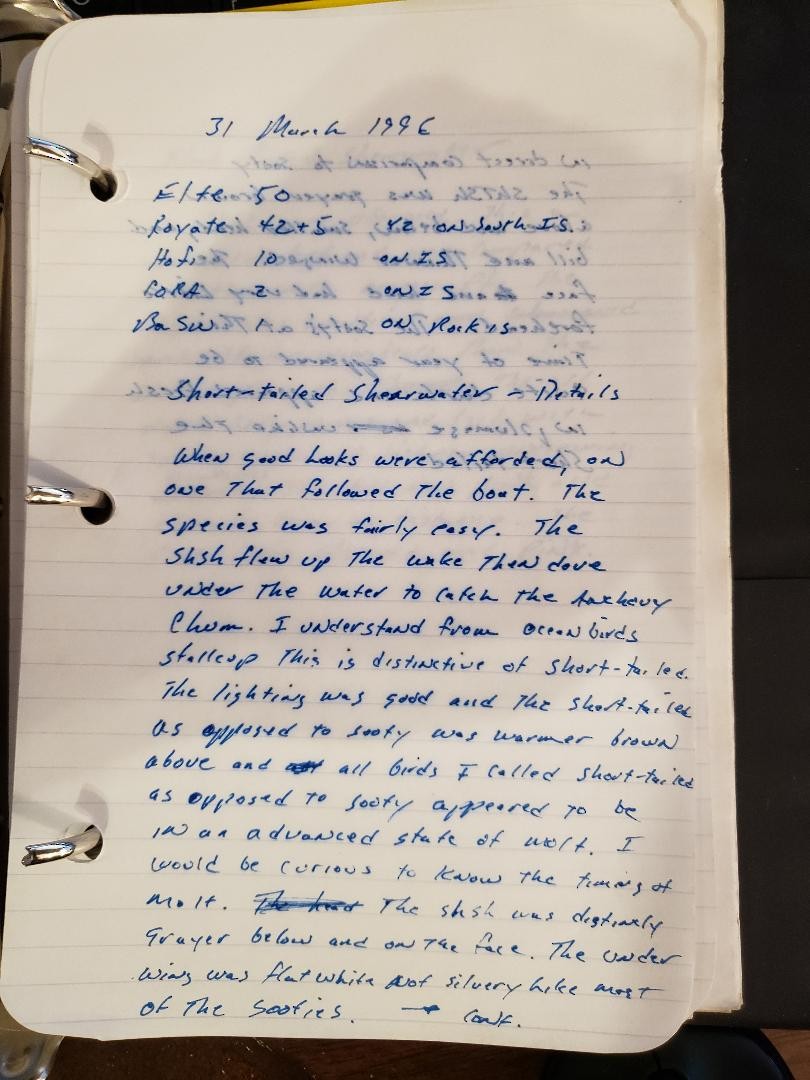 31 March 1996
El te 50
Royate 42+5, 42 on South IS.
Hofi 10 on I.S.
CORA 2 ON IS
Ba Sw 1 ON Rock is
Short-tailed Shearwater - Details
When good looks were afforded, on
one That followed The boat. The
species was fairly easy. The
Shsh flew up The wake Then dove
under The water to catch the Anchovy
Chum. I understand from ocean birds
stallcup This is distinctive of short-tailed.
The lighting was good and The short-tailed
as opposed to sooty was warmer brown
above and all birds I called short-tailed
as opposed to sooty appeared to be
in an advanced state of molt. I
would be curious to know the timing of
molt. The shsh was distinctly
Grayer below and on The face. The under
wing was flat white not silvery like most
of The Sooties. → Cont.